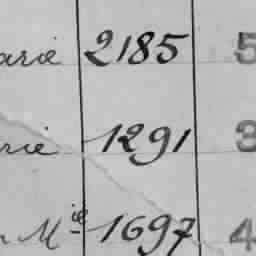 arie 2185 5
rie 1291 3
n Mie 1697 4